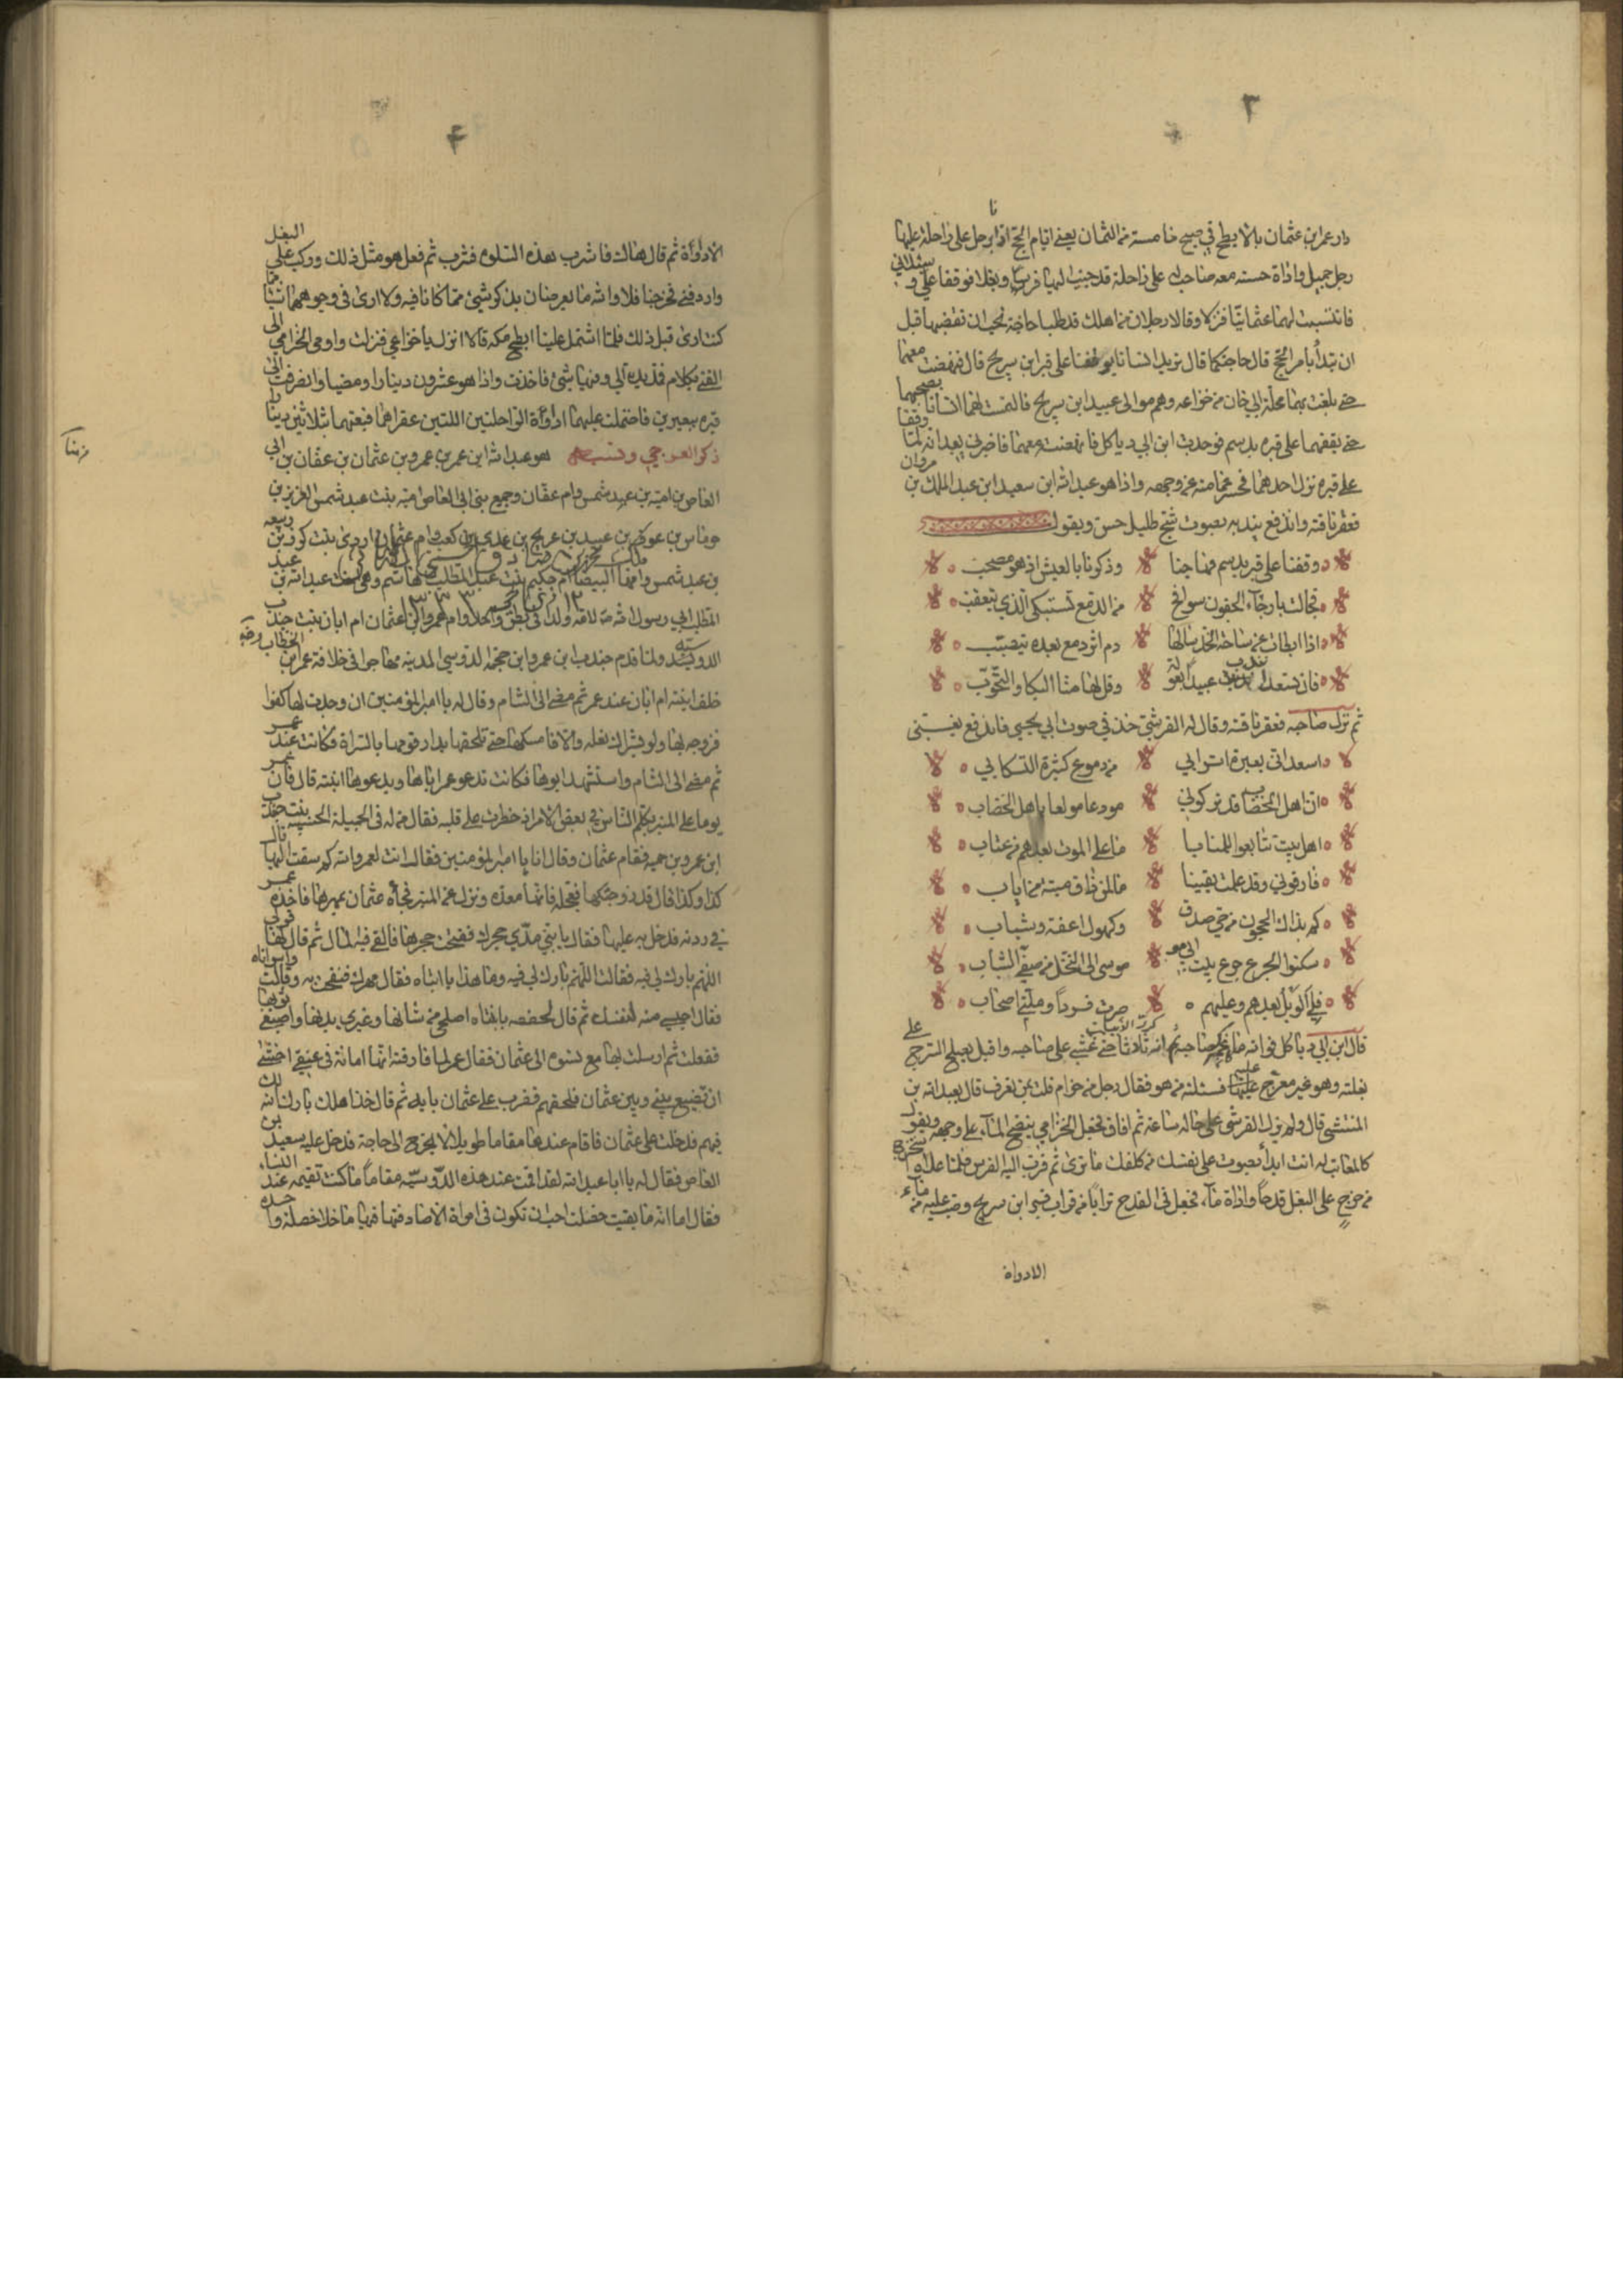 ٣
دار عمر بن عثمان بالابطح في صبح خامسة من الثمان يعني ايام الحج اذا برجل على راحلة عليها
رجل جميل واداة حسنة معه صاحب له على راحلة قد جنب اليها فرسا وبغلا فوقفا علي و سئلاني
فانتسبت لهما عثمانيا فنزلا وقالا رجلان من اهلك قد طلبا حاجة نحب ان تقضيها قبل
ان تبدأ بامر الحج قال حاجتكما قال نريد انسانا يوقفنا على قبر ابن سريج قال فنهضت معهما
حتى بلغت بهما محلة ابي خان من خزاعه وهم موالى عبيد ابن سريج فالتمست لهما انسانا يصحبهما
حتى يقفهما على قبره بدسم فوجدت ابن ابي دباكل فانهضته معهما فاخبرني بعد انه لما وقفا
على قبره نزل احدهما فحسر عمامته عن وجهه واذا هو عبد الله ابن سعيد ابن عبد الملك بن مروان
فعقر ناقته واندفع يندبه بصوت شج طليل حسن ويقول
وقفنا على قبر بدسم فهاجنا وذكرنا بالعيش اذ هو مصحب
فجالت بارجاء الجفون سوافح من الدمع تستبكي الذي يتعقب
اذا ابطات عن ساحة الخد ساقها دم اثر دمع بعده يتصبب
فان تسعدا نندب عبيدا بعولة وقل لها منا البكا والتحوب
ثم نزل صاحبه فعقر ناقته وقال له القرشي خذ في صوت ابي يحيى فاندفع يغني
اسعداني بعبرة اسرابي من دموع كثيرة التسكابي
ان اهل الخضاب قد تركوني مودعا مولعا باهل الخضاب
اهل بيت تتابعوا للمنايا ما على الموت بعدهم من عتاب
فارقوني وقد علمت يقينا ما لمن ذاق ميتة من اياب
كم بذاك الحجون من حي صدق وكهول اعفة وشباب
سكنوا الجزع جزع بيت ابي مو موسى الى النخل من صفي الشباب
فلي الويل بعدهم وعليهم صرت فردا وملني اصحاب
قال ابن ابي دباكل فوالله ما صاحبه ثلاثا حتى غشي على صاحبه واقبل يصلح السرج على
بغلته وهو غير معرج عليه فسئلته من هو فقال رجل من جذام قلت بمن تعرف قال بعبد الله بن
المنتشى قال ولم يزل القرشى على حاله ساعة ثم افاق فجعل الخزامي ينضح الماء على وجهه ويقول
كالمعاتب له انت ابدا مصبوب على نفسك من كلفك ما ترى ثم قرب اليه الفرس فلما علاه استخرج
من خرج على البغل قدحا واداة ماء فجعل في القدح ترابا من تراب قبر ابن سريج وصب عليه من ماء
الاداوة
۴
الاداوة ثم قال هاك فاشرب هذه السلوه فشرب ثم فعل هو مثل ذلك وركب على البغل
واردفني فخرجنا فلا والله ما يعرضان بذكر شيئ مما كانا فيه ولا ارى في وجوههما شيئا مما
كنت ارى قبل ذلك فلما اشتمل علينا ابطح مكه قالا انزل يا خزاعي فنزلت واومى الخزامي الى
الفتى بكلام فمد يده الي وفيها شئ فاخذته واذا هو عشرون دينارا ومضيا وانصرفت الى
قبره ببعيرين فاحتملت عليهما اداوة الراحلتين اللتين عقراهما فبعتهما بثلاثين دينارا
ذكر العرجي ونسبه هو عبد الله ابن عمر بن عمرو بن عثمان بن عفان بن ابي
العاص بن اميه بن عبد شمس وام عفان وجميع بني ابي العاص امنه بنت عبد العزى بن
حرثان بن عوف بن عبيد بن عويج بن عدي بن كعب وام عثمان اروى بنت كريز بن ربيعه
بن عبد شمس وامها البيضا ام حكيم بنت عبد المطلب بن هاشم وهي اخت عبد الله بن عبد
المطلب ابي رسول الله ولدا في بطن واحد وام عمرو ابن عثمان ام ابان بنت جندب
الدوسيه ولما قدم جندب ابن عمرو ابن حممه الدوسي المدينه مهاجرا في خلافة عمر ابن الخطاب
خلف ابنته ام ابان عند عمر ثم مضى الى الشام وقال له يا امير المؤمنين ان وجدت لها كفوا
فزوجه بها ولو بشراك نعله والا فامسكها حتى تلحقها بدار قومها بالسراة فكانت عند عمر
ثم مضى الى الشام واستشهد ابوها فكانت تدعو عمر اباها ويدعوها ابنته قال فان عمر
يوما على المنبر يكلم الناس في بعض الامر اذ خطرت على قلبه فقال من له في الجميلة الحسيبه بنت جندب
ابن عمرو بن حممه فقام عثمان وقال انا يا امير المؤمنين فقال انت لعمر والله كم سقت اليها قال
كذا وكذا قال قد زوجتكها فعجله فانها معده ونزل عن المنبر فجاء عثمان بمهرها فاخذه عمر
في ردنه فدخل به عليها فقال يا بنتي مدي حجرك ففتحت حجرها فالقى فيه المال ثم قال لها قولي
اللهم بارك لي فيه فقالت اللهم بارك لي فيه وما هذا يا ابتاه فقال مهرك فنفحت به وقالت واسواتاه
فقال احبسي منه لنفسك ثم قال لحفصه يا بنتاه اصلحي من شانها وغيري بدنها واصبغي ثوبها
ففعلت ثم ارسلت بها مع نسوه الى عثمان فقال عمر لما فارقته انها امانة في عنقي اخشى
ان تضيع بيني وبين عثمان فلحقهم فضرب على عثمان بابه ثم قال خذ اهلك بارك الله لك
فيهم فدخلت على عثمان فاقام عندها مقاما طويلا لا يخرج الى حاجة فدخل عليه سعيد بن
العاص فقال له يا ابا عبد الله لقد اقمت عند هذه الدوسيه مقاما ما كنت تقيمه عند النساء
فقال اما انه ما بقيت خصلة احب ان تكون في امراة الا صادفتها فيها ما خلا خصلة واحده